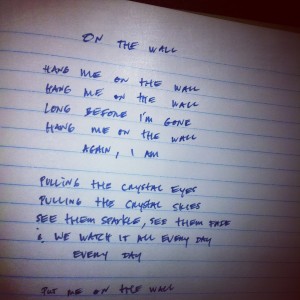 ON THE WALL
HANG ME ON THE WALL
HANG ME ON THE WALL
LONG BEFORE I'M GONE
HANG ME ON THE WALL
AGAIN, I AM
PULLING THE CRYSTAL EYES
PULLING THE CRYSTAL SKIES
SEE THEM SPARKLE, SEE THEM FADE
& WE WATCH IT ALL EVERY DAY
EVERY DAY
PUT ME ON THE WALL